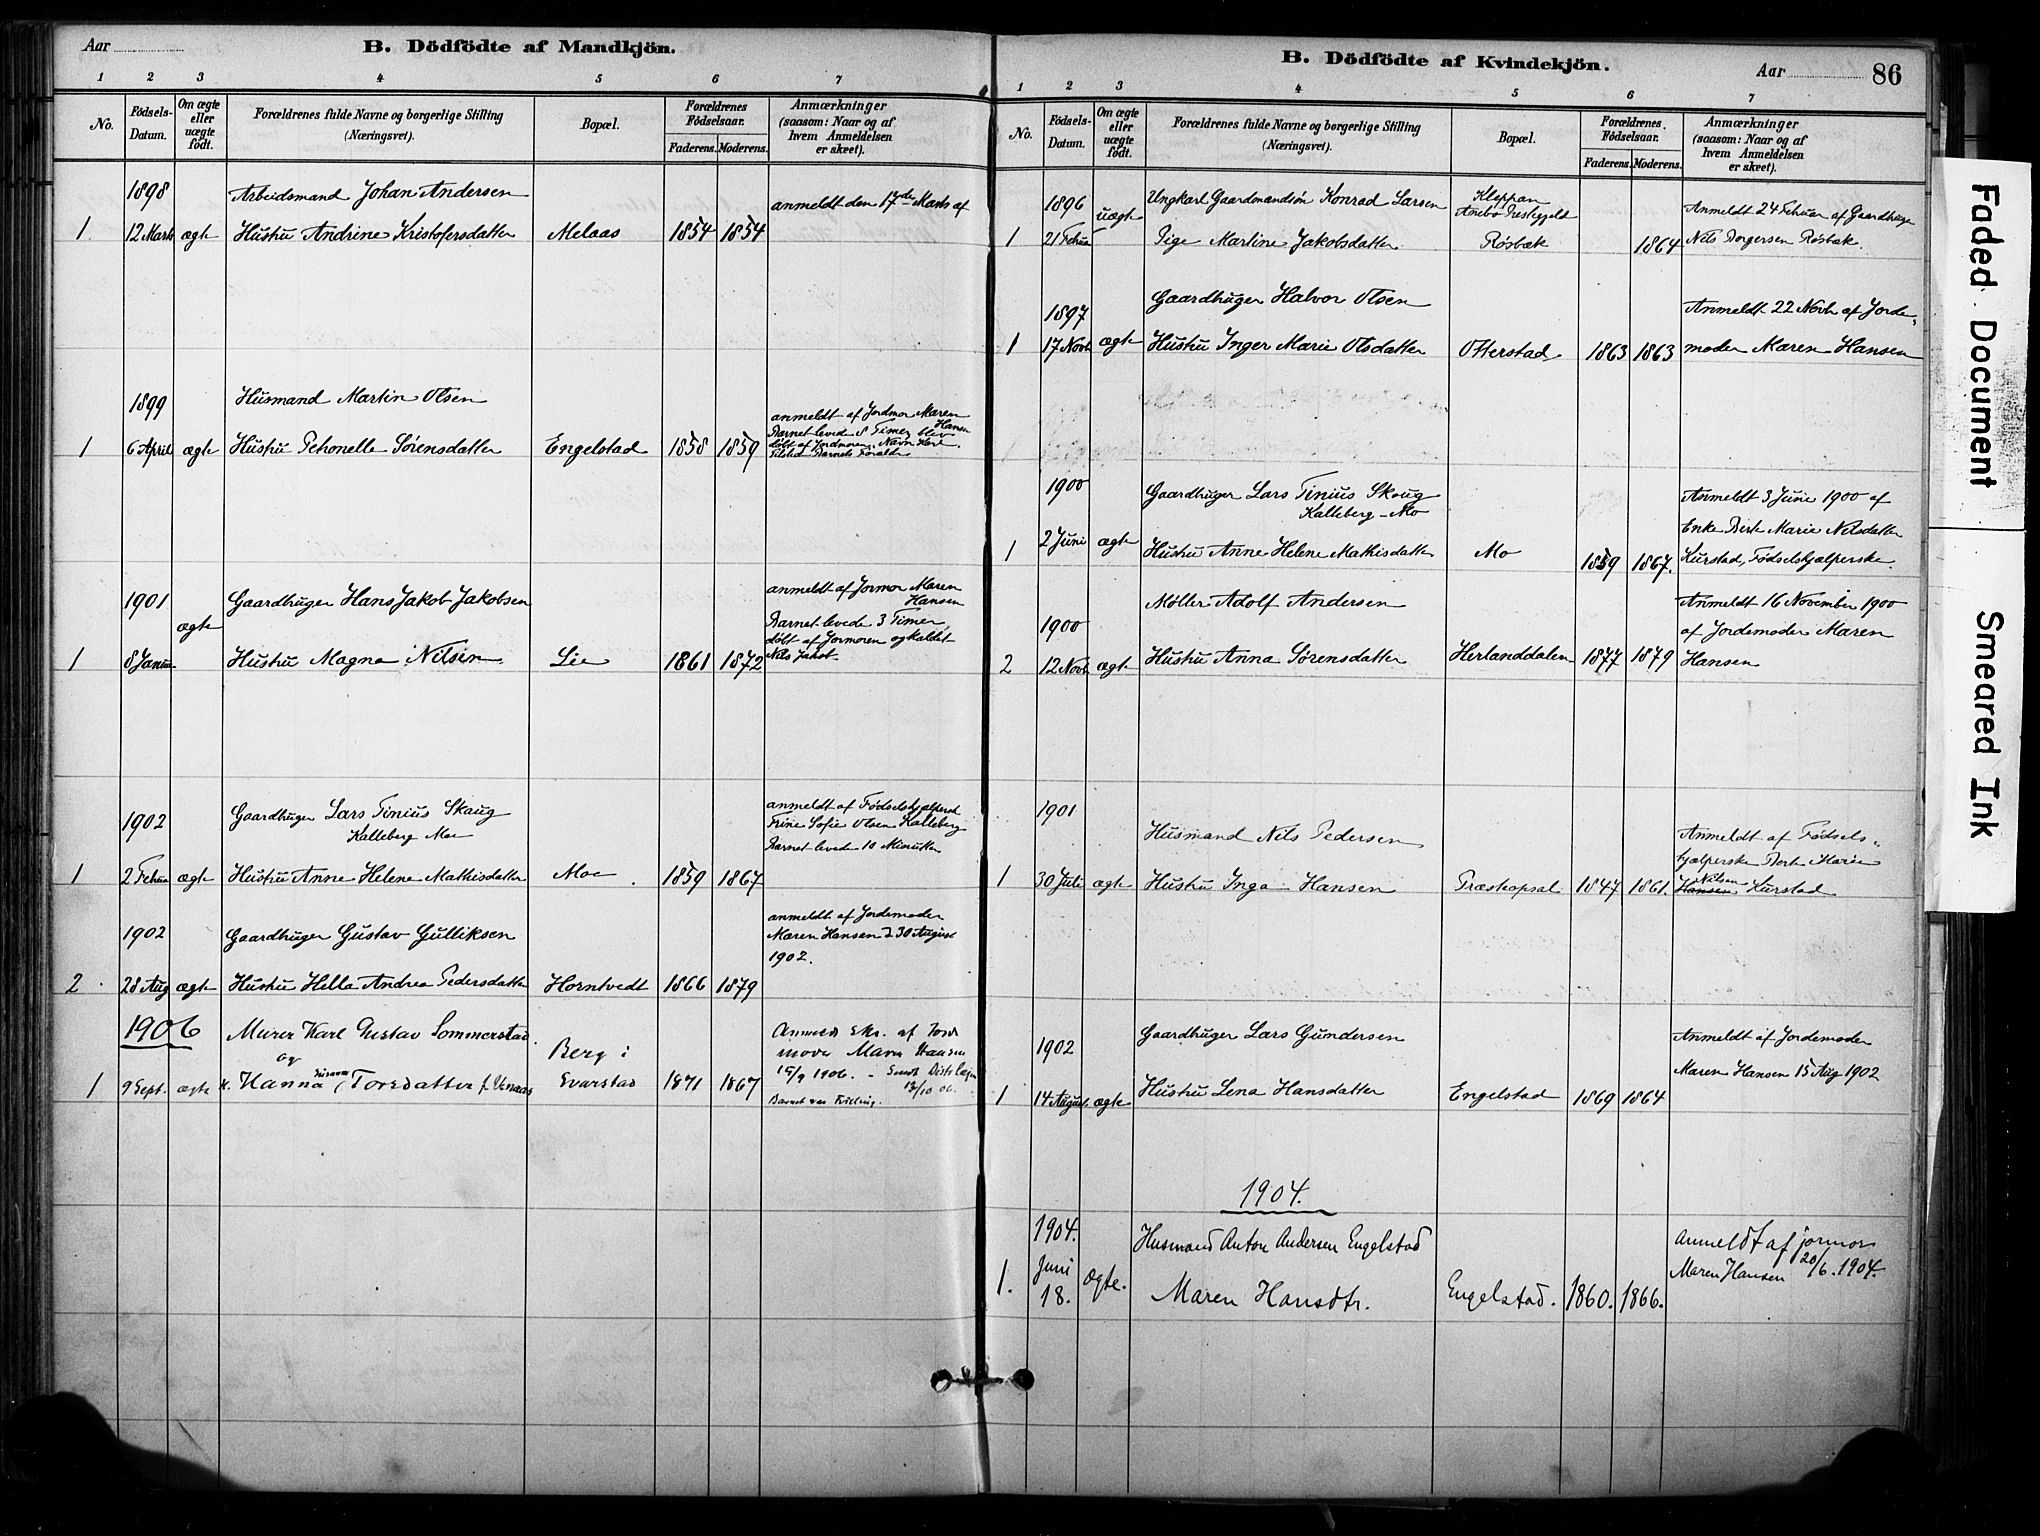 Aar
B. Dödfödte af Mandkjön.
1 2 3 4 5 6 7
No.
Födsels-
Datum.
Om ægte
eller
uægte
födt.
Forældrenes fulde Navne og borgerlige Stilling
(Næringsvei).
Bopæl.
Forældrenes
Födselsaar.
Faderens. Moderens.
Anmærkninger
(saasom: Naar og af
hvem Anmeldelsen
er skeet).
1898
Arbeidsmand Johan Andersen
anmeldt den 17de Marts af
1. 12 Marts ægte Hustru Andrine Kristofersdatter Melaas 1854 1854
1899
Husmand Martin Olsen
anmeldt af Jordmor Maren
Hansen
Barnet levede 8 Timer, blev
døbt af Jordmoren. Navn
Barnets Forældre
1 6 April ægte Hustru Petronelle Sørensdatter Engelstad 1858 1859
1901
Gaardbruger Hans Jakob Jakobsen
anmeldt af Jormor Maren
Hansen
Barnet levede 3 Timer,
døbt af Jormoren og kaldet
Nils Jakob.
1 8 Januar ægte Hustru Magna Nilsen Lie 1861 1872
1902
Gaardbruger Lars Tinius Skaug
Kalleberg Moe
anmeldt af Fødselshjælpersk
Trine Sofie Olsen Kalleberg
Barnet levede 10 Minutter
1 2 Februar ægte Hustru Anne Helene Mathisdatter Moe 1859 1867
1902
Gaardbruger Gustav Gulliksen
anmeldt af Jordemoder
Maren Hansen d 30 August
1902.
2 28 Aug ægte Hustru Hella Andrea Pedersdatter Horntvedt 1866 1879
1906
Murer Karl Gustav Sommerstad.
og
1 9 Sept. ægte H. Hanna Torsdatter f. Venaas
Berg i
Evarstad
1871 1867
Anmeldt Skr. af Jord
moder Maren Hansen
15/9 1906. - Sendt
12/10 06.
Barnet var Tvilling.
B. Dödfödte af Kvindekjön.
Aar 86
1 2 3 4 5 6 7
No.
Födsels-
Datum.
Om ægte
eller
uægte
födt.
Forældrenes fulde Navne og borgerlige Stilling
(Næringsvei).
Bopæl.
Forældrenes
Födselsaar.
Faderens. Moderens.
Anmærkninger
(saasom: Naar og af
hvem Anmeldelsen
er skeet).
1896
Ungkarl Gaardmandsøn Konrad Larsen
Kleppan
Anebo Prestegjeld
Anmeldt 24 Februar af Gaardbruger
1 21 Februar uægte Pige Martine Jakobsdatter. Røsbæk 1864 Nils Borgersen Røsbæk.
1897
Gaardbruger Halvor Olsen
Anmeldt 22 Novbr af Jorde-
1 17 Novbr ægte Hustru Inger Marie Olsdatter Otterstad 1863 1863 moder Maren Hansen
1900
Gaardbruger Lars Tinius Skoug
Kalleberg - Mo
Anmeldt 3 Juni 1900 af
Enke Bert Marie Nilsdatter
1 2 Juni ægte Hustru Anne Helene Mathisdatter Mo 1859 1867. Kurstad, Fødselshjælperske.
1900
Møller Adolf Andersen
Anmeldt 16 November 1900
af Jordemoder Maren
2 12 Novbr ægte Hustru Anna Sørensdatter Herlanddalen 1877 1879 Hansen
1901
Husmand Nils Pedersen
Anmeldt af Fødsels-
hjælperske Bert Marie
1 30 Juli ægte Hustru Inga Hansen Præsteopsal 1847 1861. Hansen Nilsen Kurstad
1902
Gaardbruger Lars Gundersen
Anmeldt af Jordemoder
Maren Hansen 15 Aug 1902
1 14 August. ægte Hustru Lena Hansdatter Engelstad 1869 1864
1904.
1904.
Husmand Anton Andersen Engelstad
Anmeldt af jormor
Maren Hansen 20/6. 1904.
1. Juni
18. ægte. Maren Hansdtr. Engelstad. 1860. 1866.
Faded Document
Smeared Ink